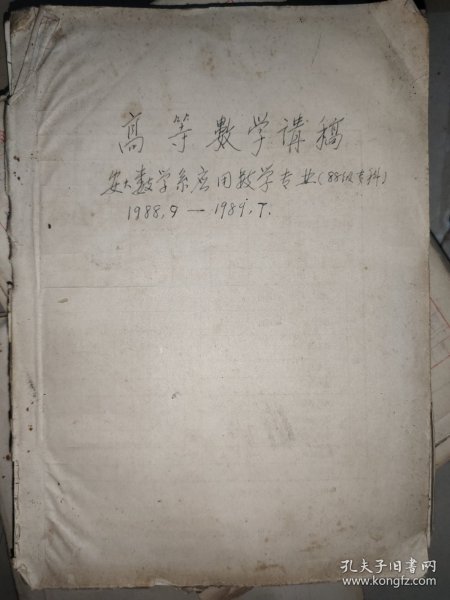 高等数学講稿
安大数学系应用数学专业(88级专科)
1988.9—1989.7.
孔夫子旧书网
www.kongfz.com